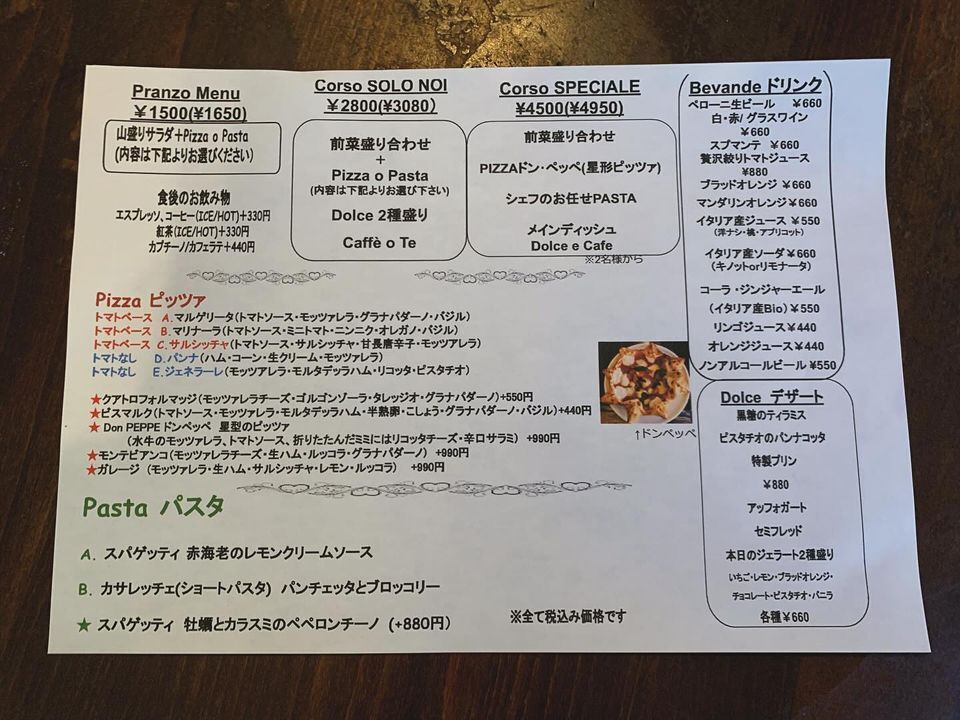 Pranzo Menu
￥1500(¥1650)
山盛りサラダ+Pizza o Pasta
(内容は下記よりお選びください)
食後のお飲み物
エスプレッソ、コーヒー(ICE/HOT)+330円
紅茶(ICE/HOT)+330円
カプチーノ/カフェラテ+440円
Corso SOLO NOI
￥2800(¥3080)
前菜盛り合わせ
+
Pizza o Pasta
(内容は下記よりお選び下さい)
Dolce 2種盛り
Caffè o Te
Corso SPECIALE
¥4500(¥4950)
前菜盛り合わせ
PIZZAドン・ペッペ(星形ピッツァ)
シェフのお任せPASTA
メインディッシュ
Dolce e Cafe
※2名様から
Bevande ドリンク
ペローニ生ビール ￥660
白・赤/グラスワイン
￥660
スプマンテ ￥660
贅沢搾りトマトジュース
¥880
ブラッドオレンジ ￥660
マンダリンオレンジ￥660
イタリア産ジュース ￥550
(洋ナシ・桃・アプリコット)
イタリア産ソーダ￥660
(キノットorリモナータ)
コーラ・ジンジャーエール
(イタリア産Bio)￥550
リンゴジュース￥440
オレンジジュース￥440
ノンアルコールビール ¥550
Pizza ピッツァ
トマトベース A.マルゲリータ(トマトソース・モッツァレラ・グラナパダーノ・バジル)
トマトベース B.マリナーラ(トマトソース・ミニトマト・ニンニク・オレガノ・バジル)
トマトベース C.サルシッチャ(トマトソース・サルシッチャ・甘長唐辛子・モッツアレラ)
トマトなし D.パンナ(ハム・コーン・生クリーム・モッツァレラ)
トマトなし E.ジェネラーレ(モッツァレラ・モルタデッラハム・リコッタ・ピスタチオ)
★クアトロフォルマッジ(モッツァレラチーズ・ゴルゴンゾーラ・タレッジオ・グラナパダーノ)+550円
★ビスマルク(トマトソース・モッツァレラ・モルタデッラハム・半熟卵・こしょう・グラナパダーノ・バジル)+440円
★ Don PEPPE ドンペッペ 星型のピッツァ
(水牛のモッツァレラ、トマトソース、折りたたんだミミにはリコッタチーズ・辛口サラミ) +990円
★モンテビアンコ(モッツァレラチーズ・生ハム・ルッコラ・グラナパダーノ) +990円
★ガレージ (モッツァレラ・生ハム・サルシッチャ・レモン・ルッコラ) +990円
↑ドンペッペ
Pasta パスタ
A. スパゲッティ 赤海老のレモンクリームソース
B. カサレッチェ(ショートパスタ) パンチェッタとブロッコリー
★ スパゲッティ 牡蠣とカラスミのペペロンチーノ (+880円)
※全て税込み価格です
Dolce デザート
黒糖のティラミス
ピスタチオのパンナコッタ
特製プリン
￥880
アッフォガート
セミフレッド
本日のジェラート2種盛り
いちご・レモン・ブラッドオレンジ・
チョコレート・ピスタチオ・バニラ
各種￥660